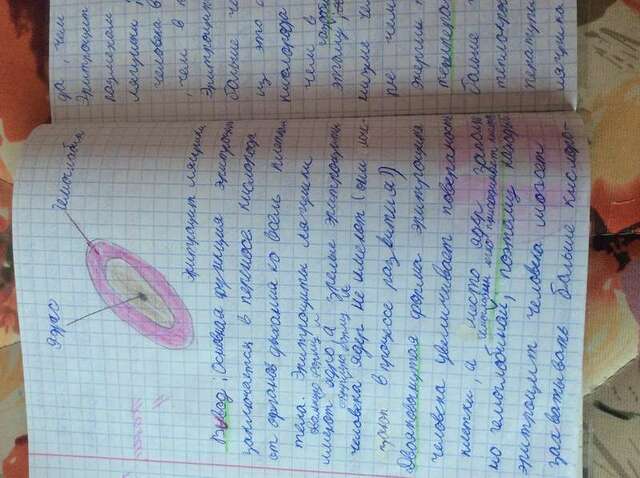 ядро
гемоглобин
эритроцит лягушки
Вывод: Основная функция эритроцитов
заключается в переносе кислорода
от органов дыхания ко всем клеткам
тела. Эритроциты лягушки
имеют ядро, а зрелые эритроциты
человека ядер не имеют (они
в процессе развития!)
Двояковогнутая форма эритроцита
человека увеличивает поверхность
клетки, а место ядер
но гемоглобином, поэтому каждый
эритроцит человека может
захватывать больше кислоро-
да, чем
Эритроцит
размером
лягушки
человека в
, чем в
Эритроцит
больше че
из этого с
кислорода
чем в
этому
ре чем
энергии
температ
больше
теплокров
пературы
лягушка